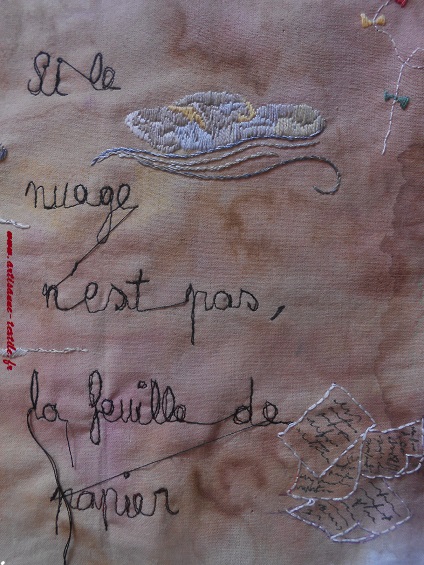 Si le
nuage
n'est pas,
la feuille de
papier
www.artisane-textile.fr